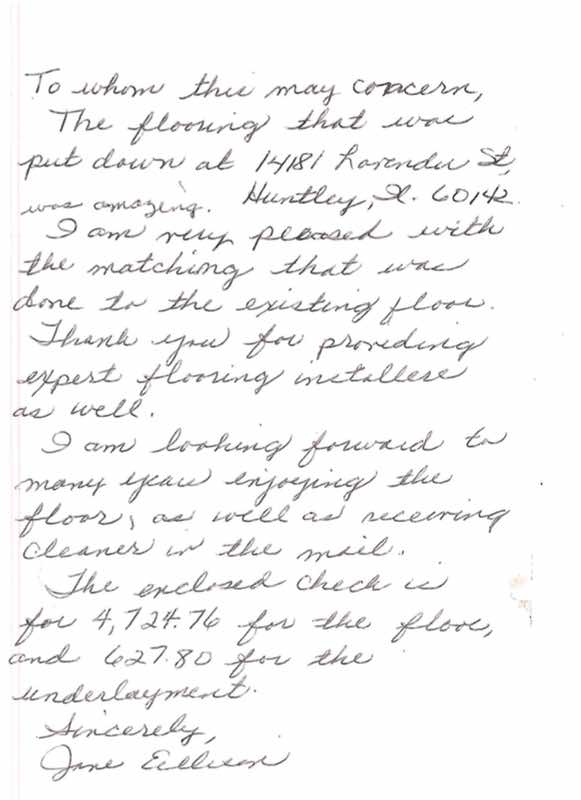 To whom this may concern,
The flooring that was
put down at 14181 Lavender St,
was amazing. Huntley, Il. 60142
I am very pleased with
the matching that was
done to the existing floor.
Thank you for providing
expert flooring installers
as well.
I am looking forward to
many years enjoying the
floor, as well as receiving
cleaner in the mail.
The enclosed check is
for 4,724.76 for the floor,
and 627.80 for the
underlayment.
Sincerely,
Jane